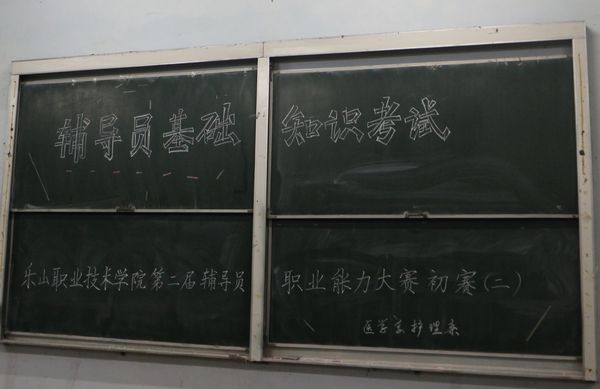 辅导员基础 知识考试
乐山职业技术学院第二届辅导员 职业能力大赛初赛(二)
医学系护理系